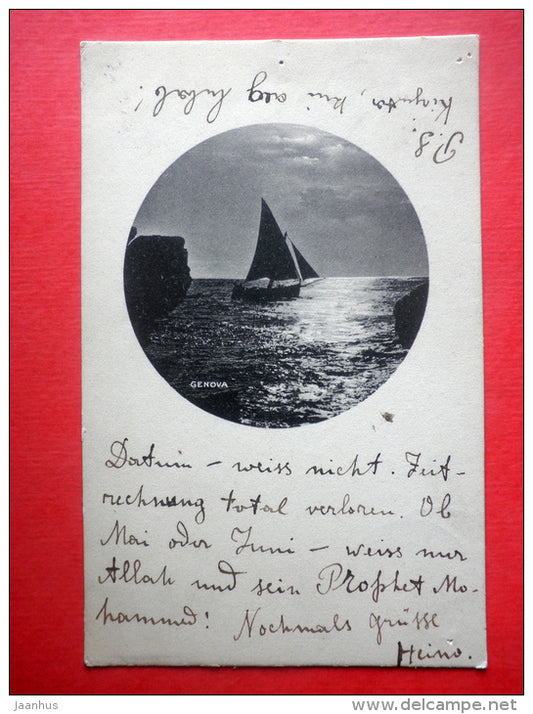 P.S.
Kirjuta, kui aeg lubab!
GENOVA
Datum – weiss nicht. Zeit-
rechnung total verloren. Ob
Mai oder Juni – weiss nur
Allah und sein Prophet Mo-
hammed! Nochmals grüsse
Heino.
Jaanhus
delcampe.net